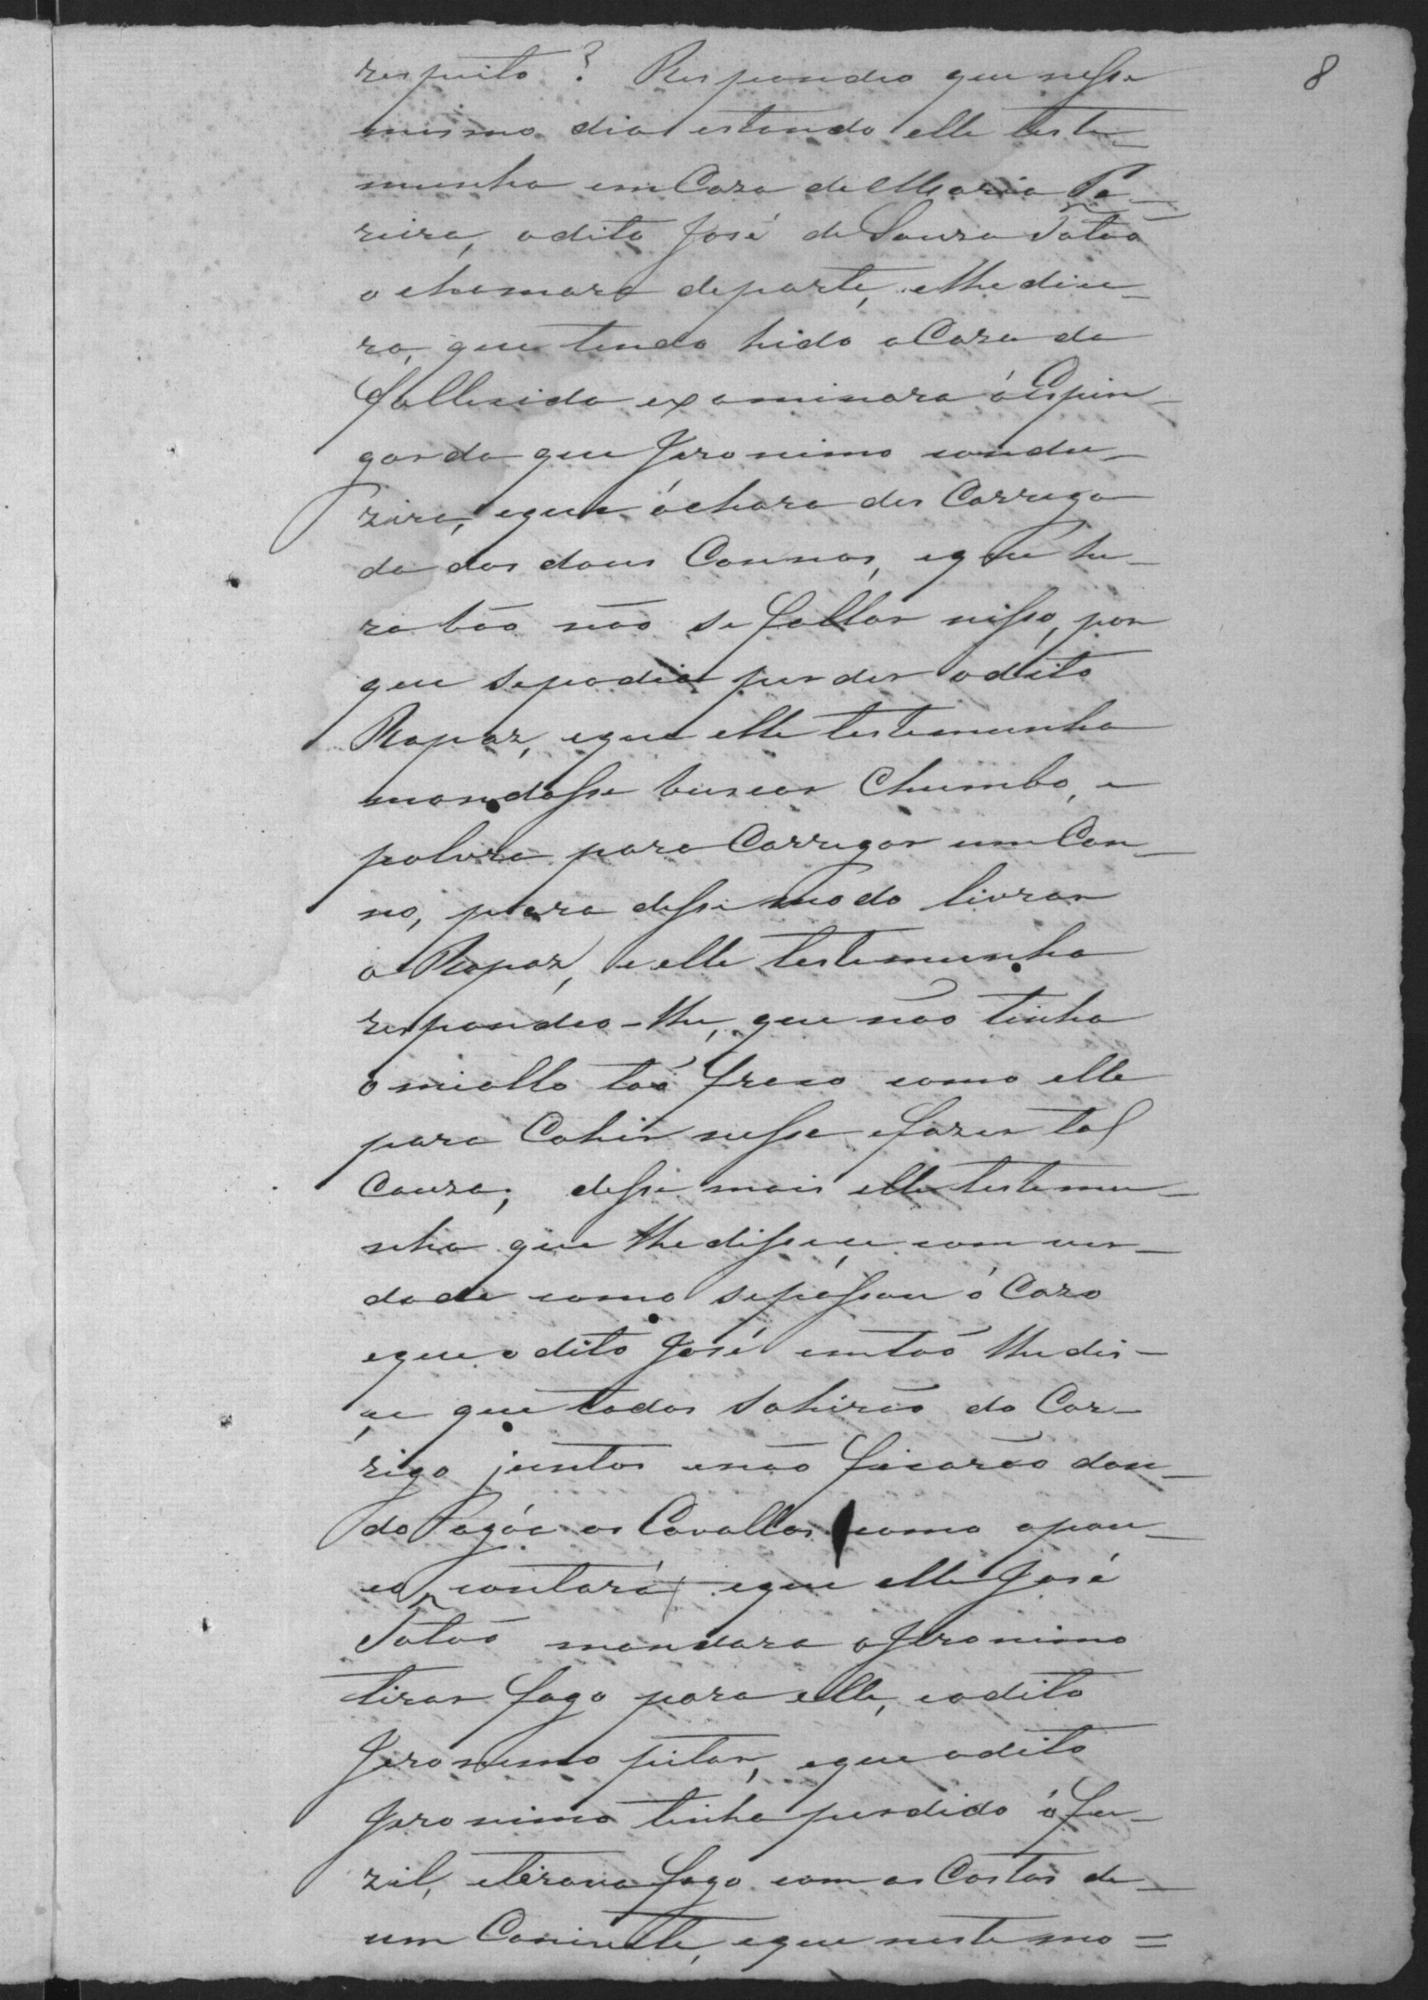 8
respeito? Respondeo que nesse
mesmo dia estando elle teste-
munha em Caza de Maria Pe-
reira, o dito José de Souza Tatão
o chamara de parte, e lhe dice-
ra, que tendo hido a Caza do
fallecido examinara á Espin-
garda que Jeronimo condu-
zira, e que á chara des Carrega
da dos dous Cannos, e que hu-
ra bão não se fallar nisso, por
que se podia perder o dito
Rapaz, e que elle testemunha
mandasse buscar Chumbo, e
polvra para Carregar um Can-
no, para desse modo livrar
o Rapaz, e elle testemunha
respondeo-lhe, que não tinha
o miollo tão fraco como elle
para Cahir nesse e fazer tal
Couza; disse mais elle testemu-
nha que lhe dissece com ver-
dade como se passou ó Cazo
e que o dito José então lhe dis-
ce que todos sahirão do Cor-
rigo juntos e não ficarão dan-
do Pagóe os Cavallos como a pou-
co contará, e que elle José
Tatão mandara a Jeronimo
tirar fogo para elle, e o dito
Jeronimo pitar, e que o dito
Jeronimo tinha perdido ó fu-
zil, e tirava fogo com as Costas de
um Canivette, e que neste mo=